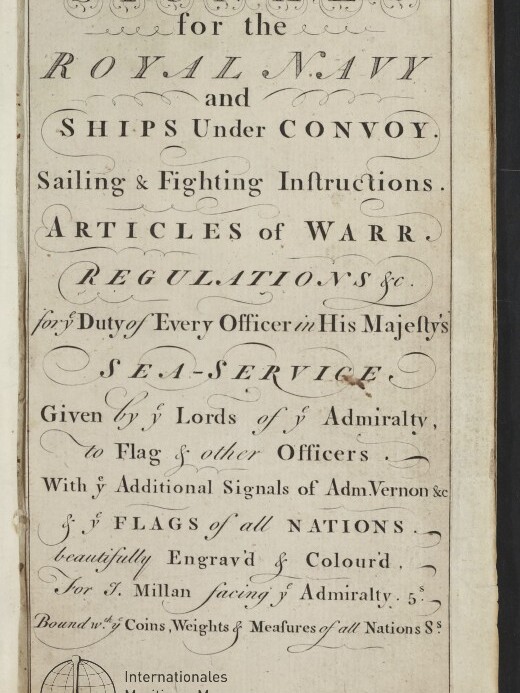 for the
ROYAL NAVY
and
SHIPS Under CONVOY.
Sailing & Fighting Inſtructions.
ARTICLES of WARR.
REGULATIONS &c.
for yᵉ Duty of Every Officer in His Majeſty's
SEA-SERVICE.
Given by yᵉ Lords of yᵉ Admiralty,
to Flag & other Officers.
With yᵉ Additional Signals of Adm. Vernon &c
& yᵉ FLAGS of all NATIONS.
beautifully Engrav'd & Colour'd.
For J. Millan facing yᵉ Admiralty. 5ˢ.
Bound wᵗʰ yᵉ Coins, Weights & Meaſures of all Nations 8ˢ.
Internationales